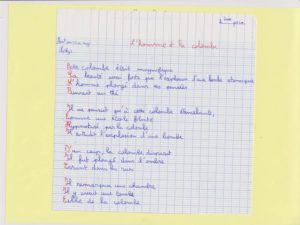 L'homme et la colombe
Cette colombe était magnifique
Sa beauté aussi forte que l'explosion d'une bombe atomique
L'homme plongé dans ses pensées
Buvait un thé
Il ne pensait qu'à cette colombe
Comme une étoile filante
Hypnotisé par la colombe
Il entendit l'explosion d'une bombe
D'un coup, la colombe disparut
Il fut plongé dans l'ombre
Courant dans la rue
Il remarqua une chambre
Il y avait une tombe
Celle de la colombe